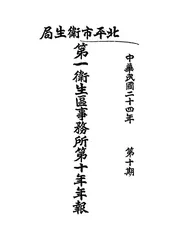 北平市衛生局
中華民國二十四年　第十期
第一衛生區事務所第十年年報